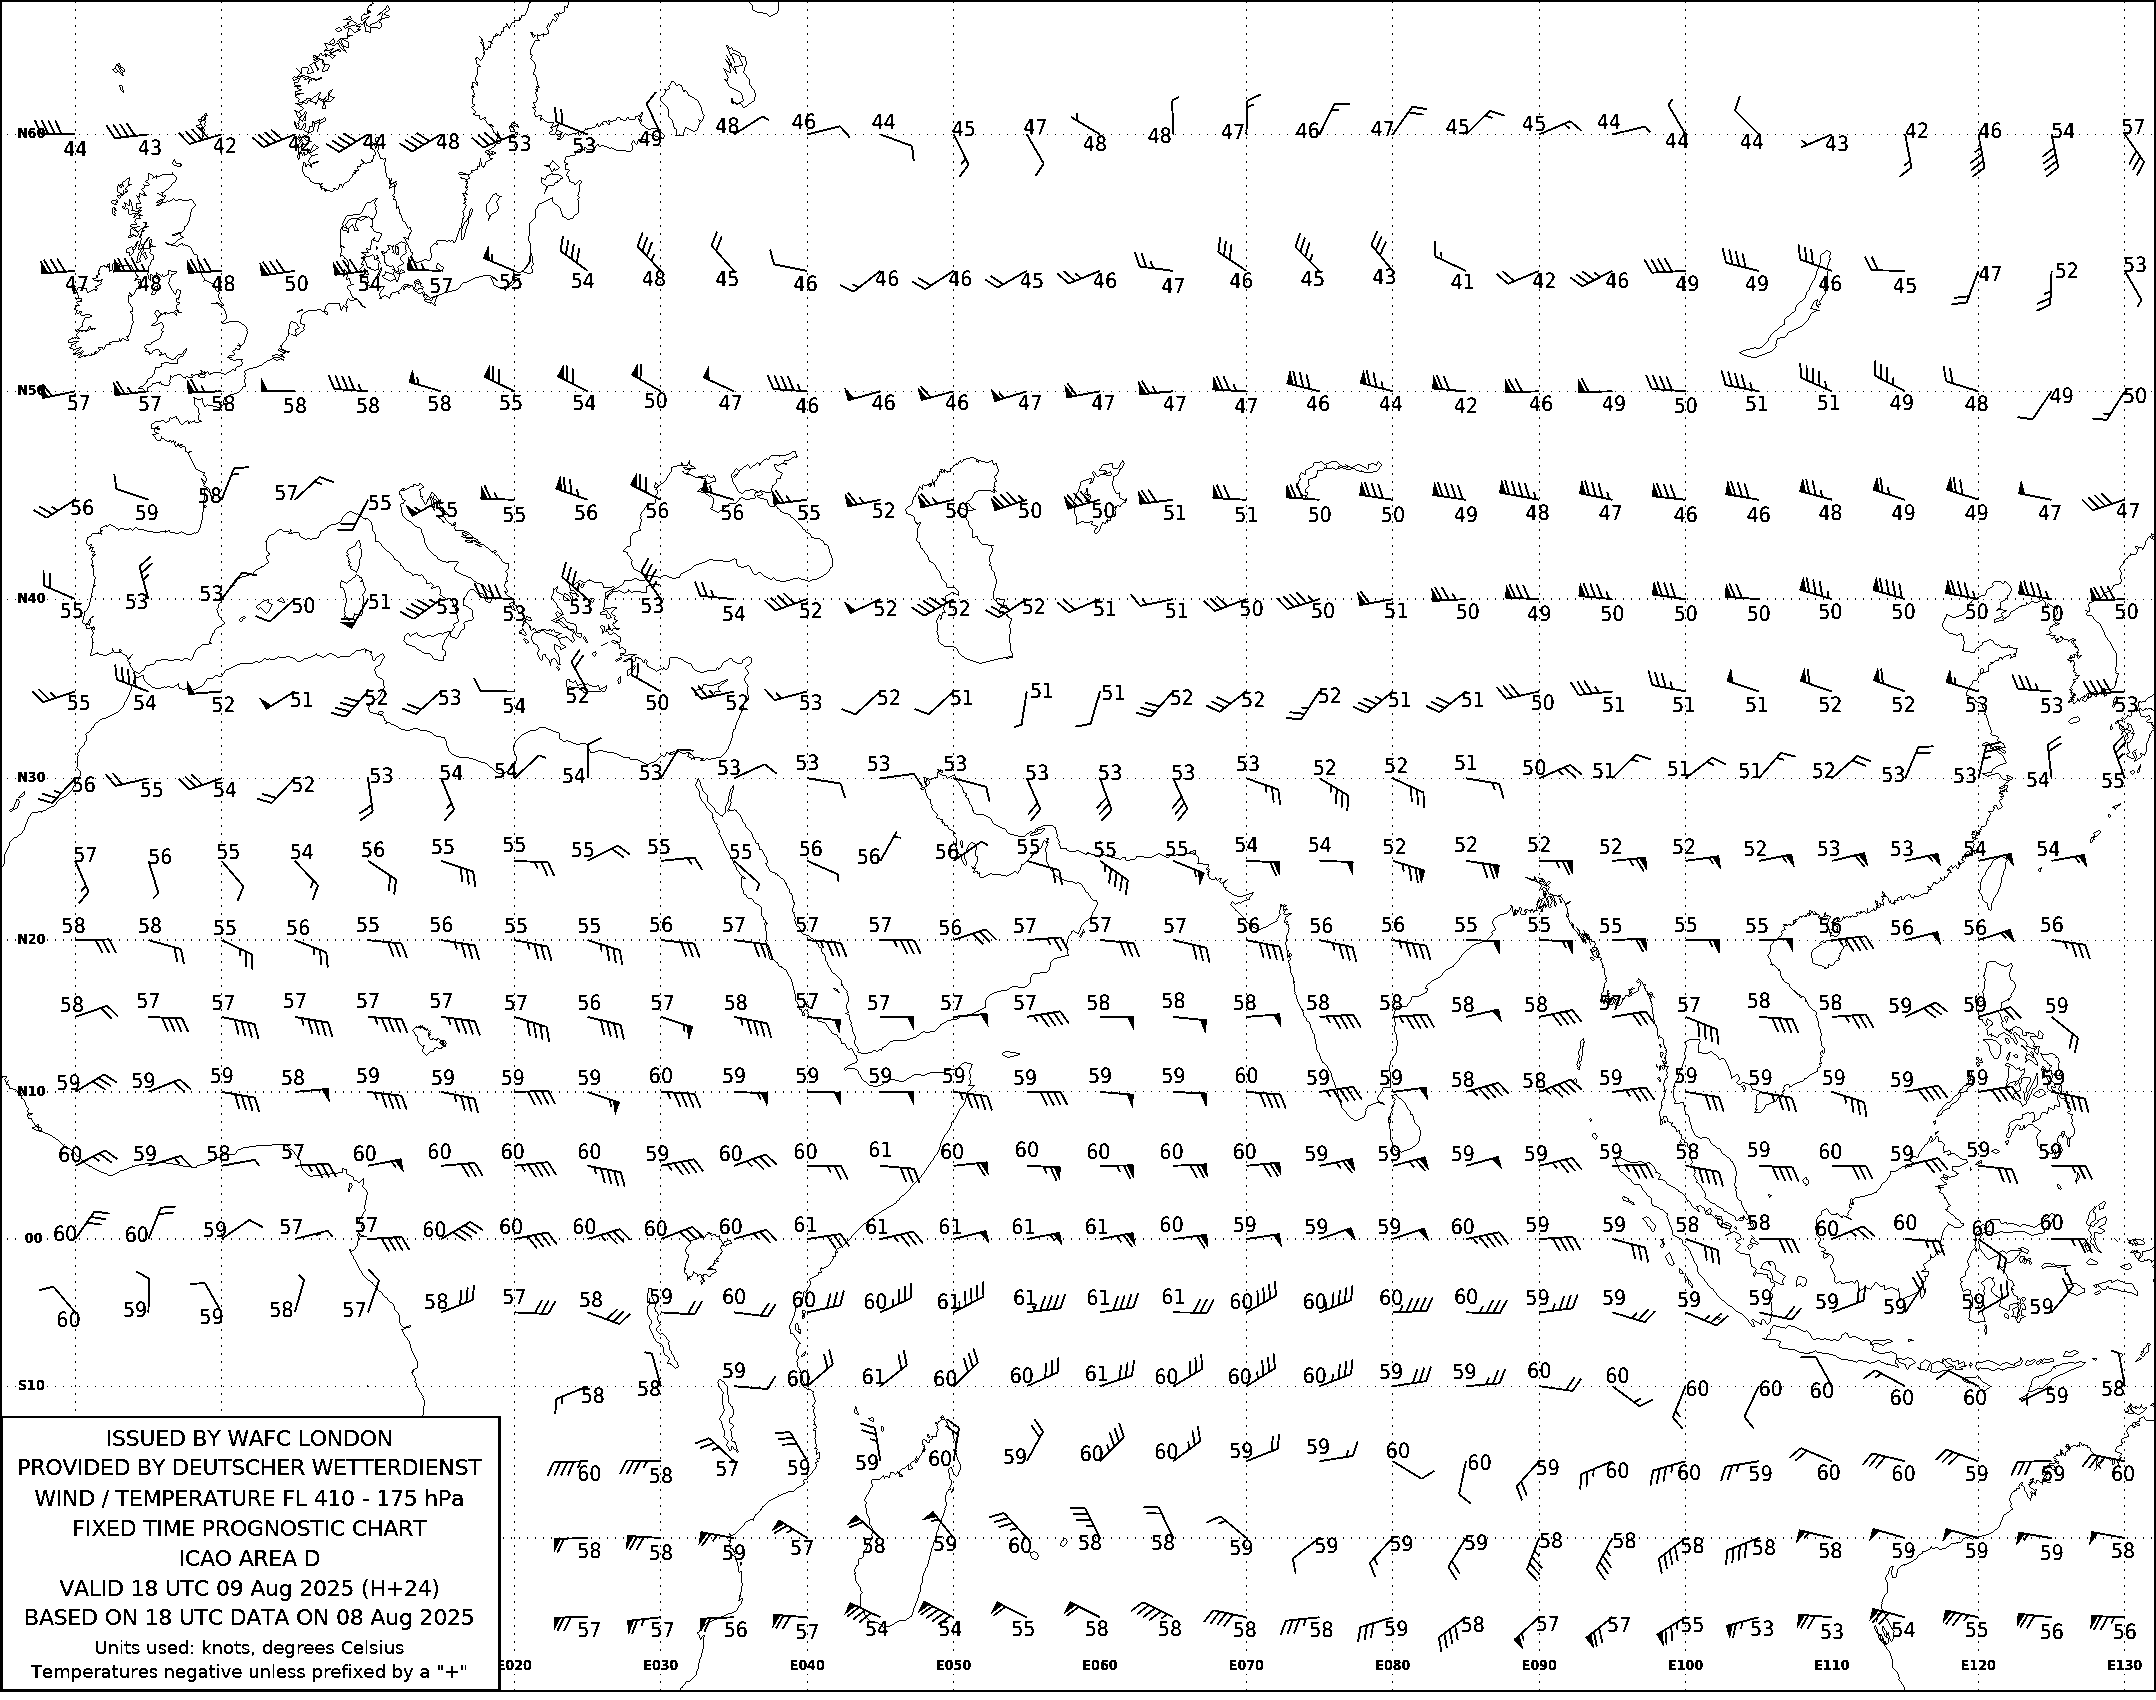 N60 44 43 42 42 44 48 53 53 49 48 46 44 45 47 48 48 47 46 47 45 45 44 44 44 43 42 46 54 57
47 48 48 50 54 57 55 54 48 45 46 46 46 45 46 47 46 45 43 41 42 46 49 49 46 45 47 52 53
N50 57 57 58 58 58 58 55 54 50 47 46 46 46 47 47 47 47 46 44 42 46 49 50 51 51 49 48 49 50
56 59 58 57 55 55 55 56 56 56 55 52 50 50 50 51 51 50 50 49 48 47 46 46 48 49 49 47 47
N40 55 53 53 50 51 53 53 53 53 54 52 52 52 52 51 51 50 50 51 50 49 50 50 50 50 50 50 50 50
55 54 52 51 52 53 54 52 50 52 53 51 51 51 51 52 52 52 51 51 50 51 51 51 52 52 53 53 53
N30 56 55 54 52 53 54 54 54 53 53 53 53 53 53 53 53 53 52 52 51 50 51 51 51 52 53 53 54 55
57 56 55 54 56 55 55 55 55 55 56 56 56 55 55 55 54 54 52 52 52 52 52 52 53 53 54 54
N20 58 58 55 56 55 56 55 55 56 57 57 57 56 57 57 57 56 56 56 55 55 55 55 55 56 56 56 56
58 57 57 57 57 57 57 56 57 58 57 57 57 57 58 58 58 58 58 58 58 57 57 58 58 59 59 59
N10 59 59 59 58 59 59 59 59 60 59 59 59 59 59 59 59 60 59 59 58 58 59 59 59 59 59 59 59
60 59 58 57 60 60 60 60 59 60 60 61 60 60 60 60 60 59 59 59 59 59 58 59 60 59 59 59
00 60 60 59 57 57 60 60 60 60 60 61 61 61 61 61 60 59 59 59 60 59 59 58 58 60 60 60 60
60 59 59 58 57 58 57 58 59 60 60 60 61 61 61 61 60 60 60 60 59 59 59 59 59 59 59 59
S10 58 58 59 60 61 60 60 61 60 60 60 59 59 60 60 60 60 60 60 60 59 58
60 58 57 59 59 60 59 60 60 59 59 60 60 59 60 60 59 60 60 59 59 60
58 58 59 57 58 59 60 58 58 59 59 59 59 58 58 58 58 58 59 59 59 58
57 57 56 57 54 54 55 58 58 58 58 59 58 57 57 55 53 53 54 55 56 56
E020 E030 E040 E050 E060 E070 E080 E090 E100 E110 E120 E130
ISSUED BY WAFC LONDON
PROVIDED BY DEUTSCHER WETTERDIENST
WIND / TEMPERATURE FL 410 - 175 hPa
FIXED TIME PROGNOSTIC CHART
ICAO AREA D
VALID 18 UTC 09 Aug 2025 (H+24)
BASED ON 18 UTC DATA ON 08 Aug 2025
Units used: knots, degrees Celsius
Temperatures negative unless prefixed by a "+"